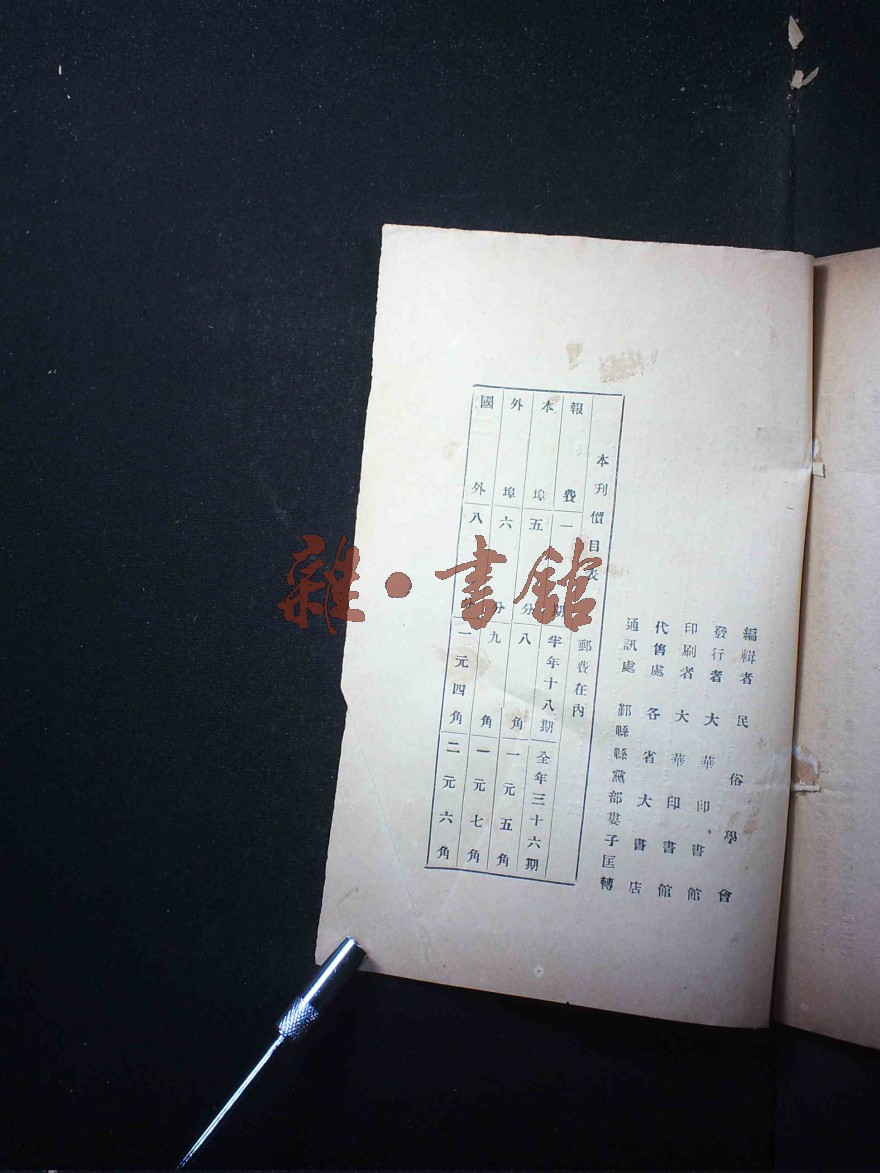 編輯者 民俗學會
發行者 大華印書館
印刷者 大華印書館
代售處 各省大書店
通訊處 鄞縣縣黨部婁子匡轉
本刊價目表 郵費在內
報費 一期 半年十八期 全年三十六期
本埠 五分 八角 一元五角
外埠 六分 九角 一元七角
國外 八分 一元四角 二元六角
雜·書館